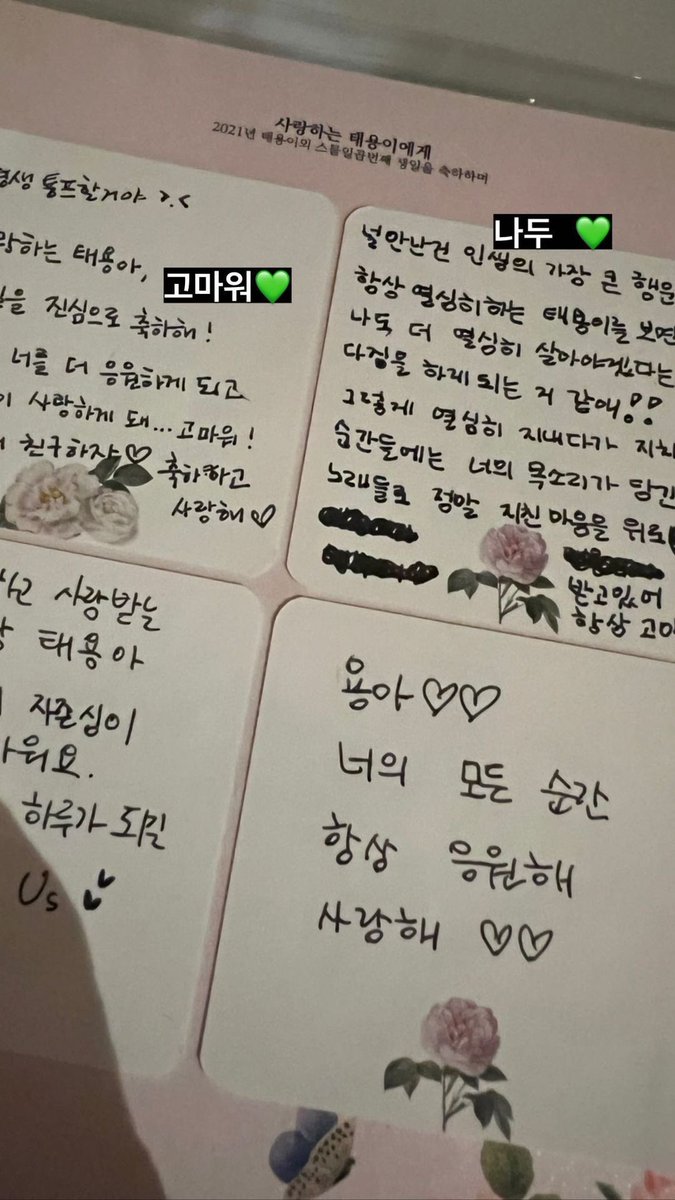 사랑하는 태용이에게
2021년 태용이의 스물일곱번째 생일을 축하하며
평생 통프할거야 >.<
랑하는 태용아,
고마워💚
을 진심으로 축하해!
너를 더 응원하게 되고
이 사랑하게 돼... 고마워!
친구하자♡ 축하하고
사랑해♡
나두 💚
널 만난건 인생의 가장 큰 행운
항상 열심히하는 태용이를 보면
나도 더 열심히 살아야겠다는
다짐을 하게 되는 거 같애!!
그렇게 열심히 지내다가 지치
순간들에는 너의 목소리가 담긴
노래들로 정말 지친 마음을 위로
받고있어
항상 고마
사랑받는
태용아
자존심이
워요.
하루가 되길
Us
용아♡♡
너의 모든 순간
항상 응원해
사랑해 ♡♡